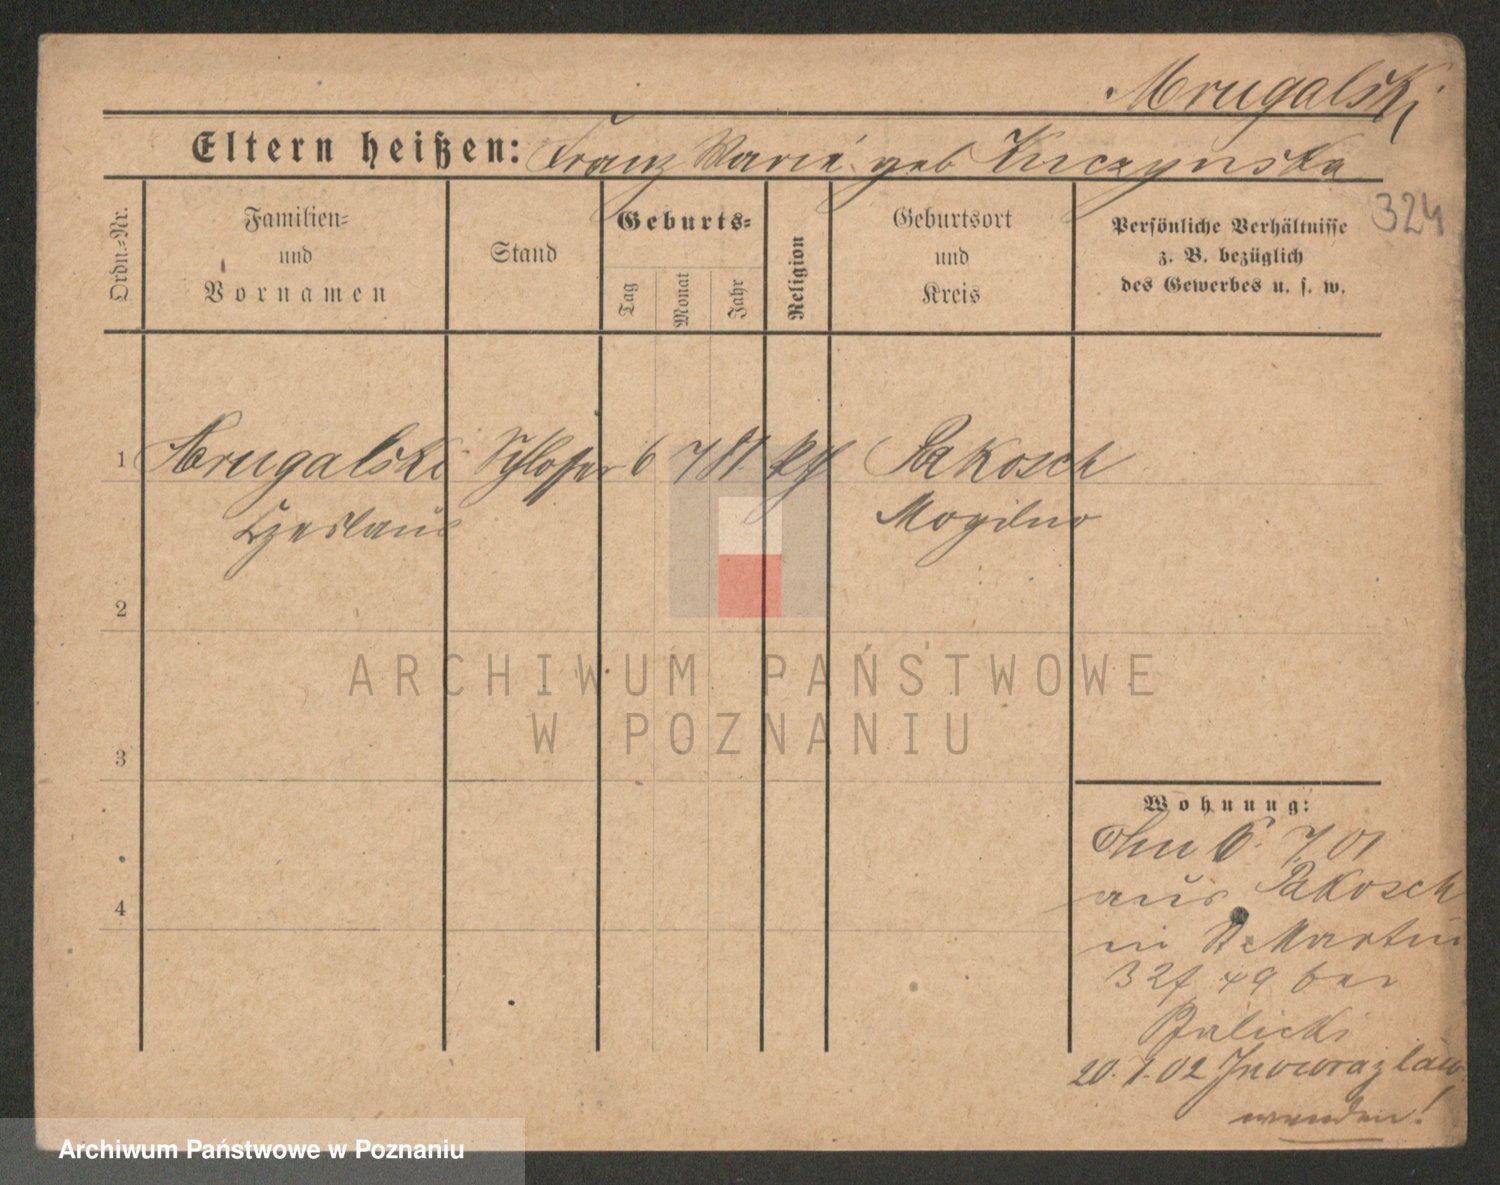 Mrugalski
Eltern heißen: Franz Marie geb Kuczynska
324
Ordn.-Nr.
Familien-
und
Vornamen
Stand
Geburts-
Tag
Monat
Jahr
Religion
Geburtsort
und
Kreis
Persönliche Verhältnisse
z. B. bezüglich
des Gewerbes u. s. w.
1 Mrugalski Schlosser 6 7 81 kth Pakosch
Czeslaus Mogilno
2
3
4
Wohnung:
6. 7 01
aus Pakosch
in St Martin
32 49 bei
20. 1. 02 Inowrazlaw
wenden!
ARCHIWUM PAŃSTWOWE
W POZNANIU
Archiwum Państwowe w Poznaniu